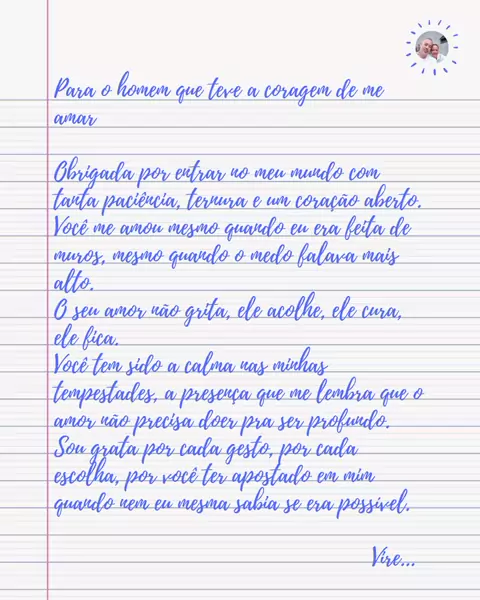 Para o homem que teve a coragem de me
amar
Obrigada por entrar no meu mundo com
tanta paciência, ternura e um coração aberto.
Você me amou mesmo quando eu era feita de
muros, mesmo quando o medo falava mais
alto.
O seu amor não grita, ele acolhe, ele cura,
ele fica.
Você tem sido a calma nas minhas
tempestades, a presença que me lembra que o
amor não precisa doer pra ser profundo.
Sou grata por cada gesto, por cada
escolha, por você ter apostado em mim
quando nem eu mesma sabia se era possível.
Vire...